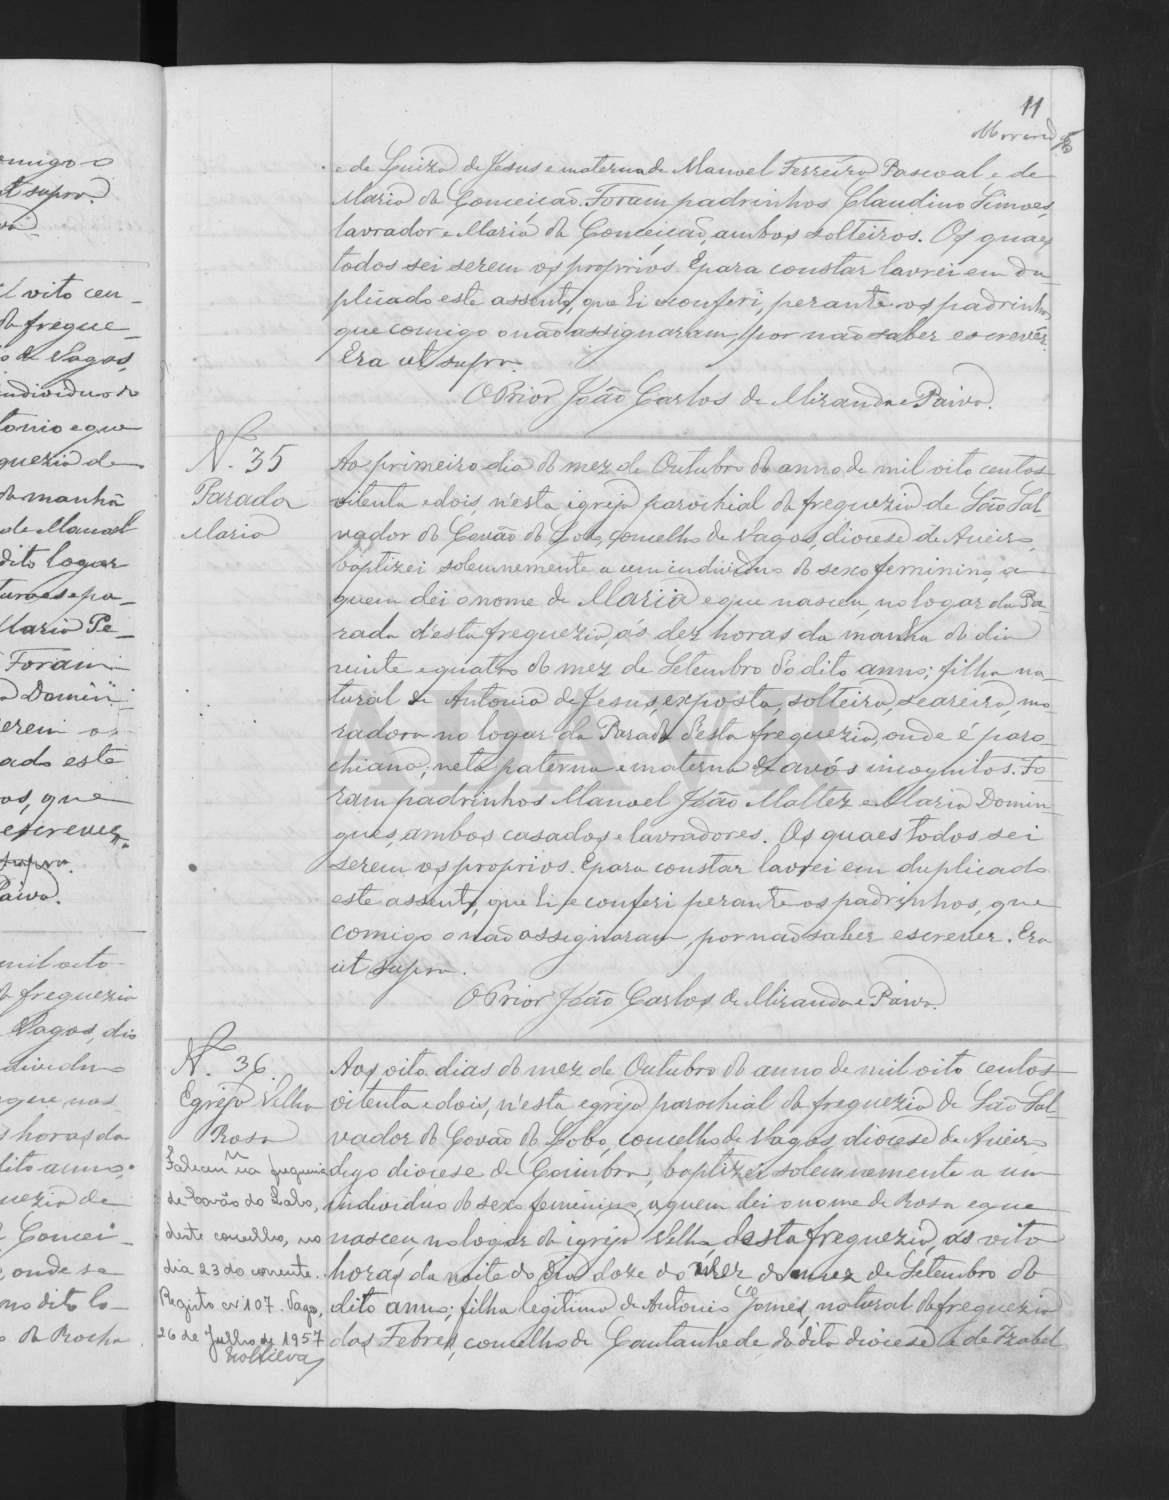 11
e de Luiza de Jesus e materna de Manoel Ferreira Pascoal e de
Maria da Conceição. Foram padrinhos Claudino Simoes,
lavrador e Maria da Conceição, ambos solteiros. Os quaes
todos sei serem os proprios. E para constar lavrei em du
plicado este assento, que li e conferi, perante os padrinhos
que comigo o não assignaram, por não saber escrever.
Era ut supra.
O Prior João Carlos de Miranda e Paiva.
N. 35
Parada
Maria
Ao primeiro dia do mez de Outubro do anno de mil oito centos
oitenta e dois, n'esta igreja parochial da freguezia de São Sal-
vador do Covão do Lobo, concelho de Vagos, diocese de Aveiro,
baptizei solemnemente a um individuo do sexo feminino, a
quem dei o nome de Maria e que nasceu, no logar da Pa-
rada d'esta freguezia, ás dez horas da manhã do dia
vinte e quatro do mez de Setembro do dito anno; filha na-
tural de Antonia de Jesus, exposta, solteira, seareira, mo
radora no logar da Parada d'esta freguezia, onde é paro-
chiana; neta paterna e materna de avós incognitos. Fo-
ram padrinhos Manoel João Maltez e Maria Domin-
gues, ambos casados e lavradores. Os quaes todos sei
serem os proprios. E para constar lavrei em duplicado
este assento, que li e conferi perante os padrinhos, que
comigo o não assignaram, por não saber escrever. Era
ut supra.
O Prior João Carlos de Miranda e Paiva.
N. 36
Egreja Velha
Rosa
Faleceu na freguesia
de Covão do Lobo,
deste concelho, no
dia 23 do corrente.
Registo nº 107. Vagos,
26 de Julho de 1957
Aos oito dias do mez de Outubro do anno de mil oito centos
oitenta e dois, n'esta egreja parochial da freguezia de São Sal-
vador do Covão do Lobo, concelho de Vagos, diocese de Aveiro
digo diocese de Coimbra, baptizei solemnemente a um
individuo do sexo feminino, a quem dei o nome de Rosa e que
nasceu, no logar da igreja Velha, desta freguezia, ás oito
horas da noite do dia doze do mez do mez de Setembro do
dito anno; filha legitima de Antonio Gomes, natural da freguezia
das Febres, concelho de Cantanhede, da dita diocese e de Izabel
ADAVR
omigo o
ut supra.
l oito cen-
da fregue-
de Vagos,
individuo do
tonio e que
guezia de
da manhã
de Manoel
dito logar
Maria Pe-
Foram
Domin-
erem os
ado este
os, que
escrever.
supra.
Paiva.
mil oito
da freguezia
Vagos, dio
dividuo
que nas
s horas da
dito anno;
uezia de
Concei-
, onde sa
no dito lo-
da Rocha